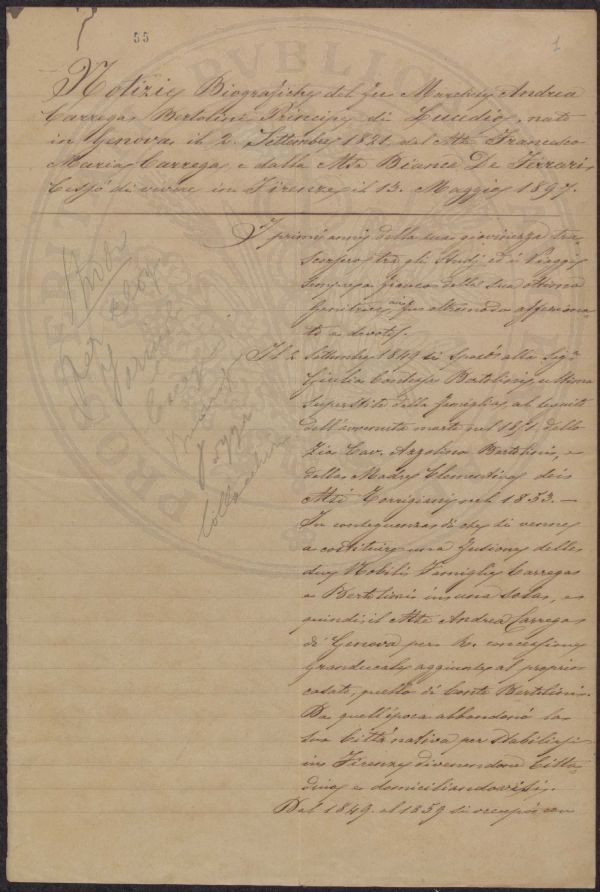 55
1
Notizie Biografiche del fu Marchese Andrea
Carrega Bertolini Principe di Lucedio, nato
in Genova il 2. Settembre 1821. dal Mse Francesco
Maria Carrega e dalla Msa Bianca De Ferrari
Cessò di vivere in Firenze il 13. Maggio 1897.
I primi anni della sua giovinezza tra-
scorsero tra gli Studj ed i Viaggi
sempre a fianco della sua ottima
Genitrice cui fu oltremodo affeziona-
to e devoto.
Il 2 Settembre 1849 si sposò alla Sigra
Giulia Contessa Bertolini, ultima
superstite della famiglia, al seguito
dell'avvenuta morte nel 1851 dello
Zio Cav. Azzolino Bertolini, e
della Madre Clementina dei
Msi Torrigiani nel 1853. —
In conseguenza di che si venne
a costituire una fusione delle
due Nobili Famiglie Carrega
e Bertolini in una sola, e
quindi il Mse Andrea Carrega
di Genova per R. concessione
Granducale aggiunse al proprio
casato, quello di Conte Bertolini.
Da quell'epoca abbandonò la
sua Città nativa per stabilirsi
in Firenze divenendone Citta-
dino e domiciliandovisi.
Dal 1849 al 1859 si occupò con
PVBLIC